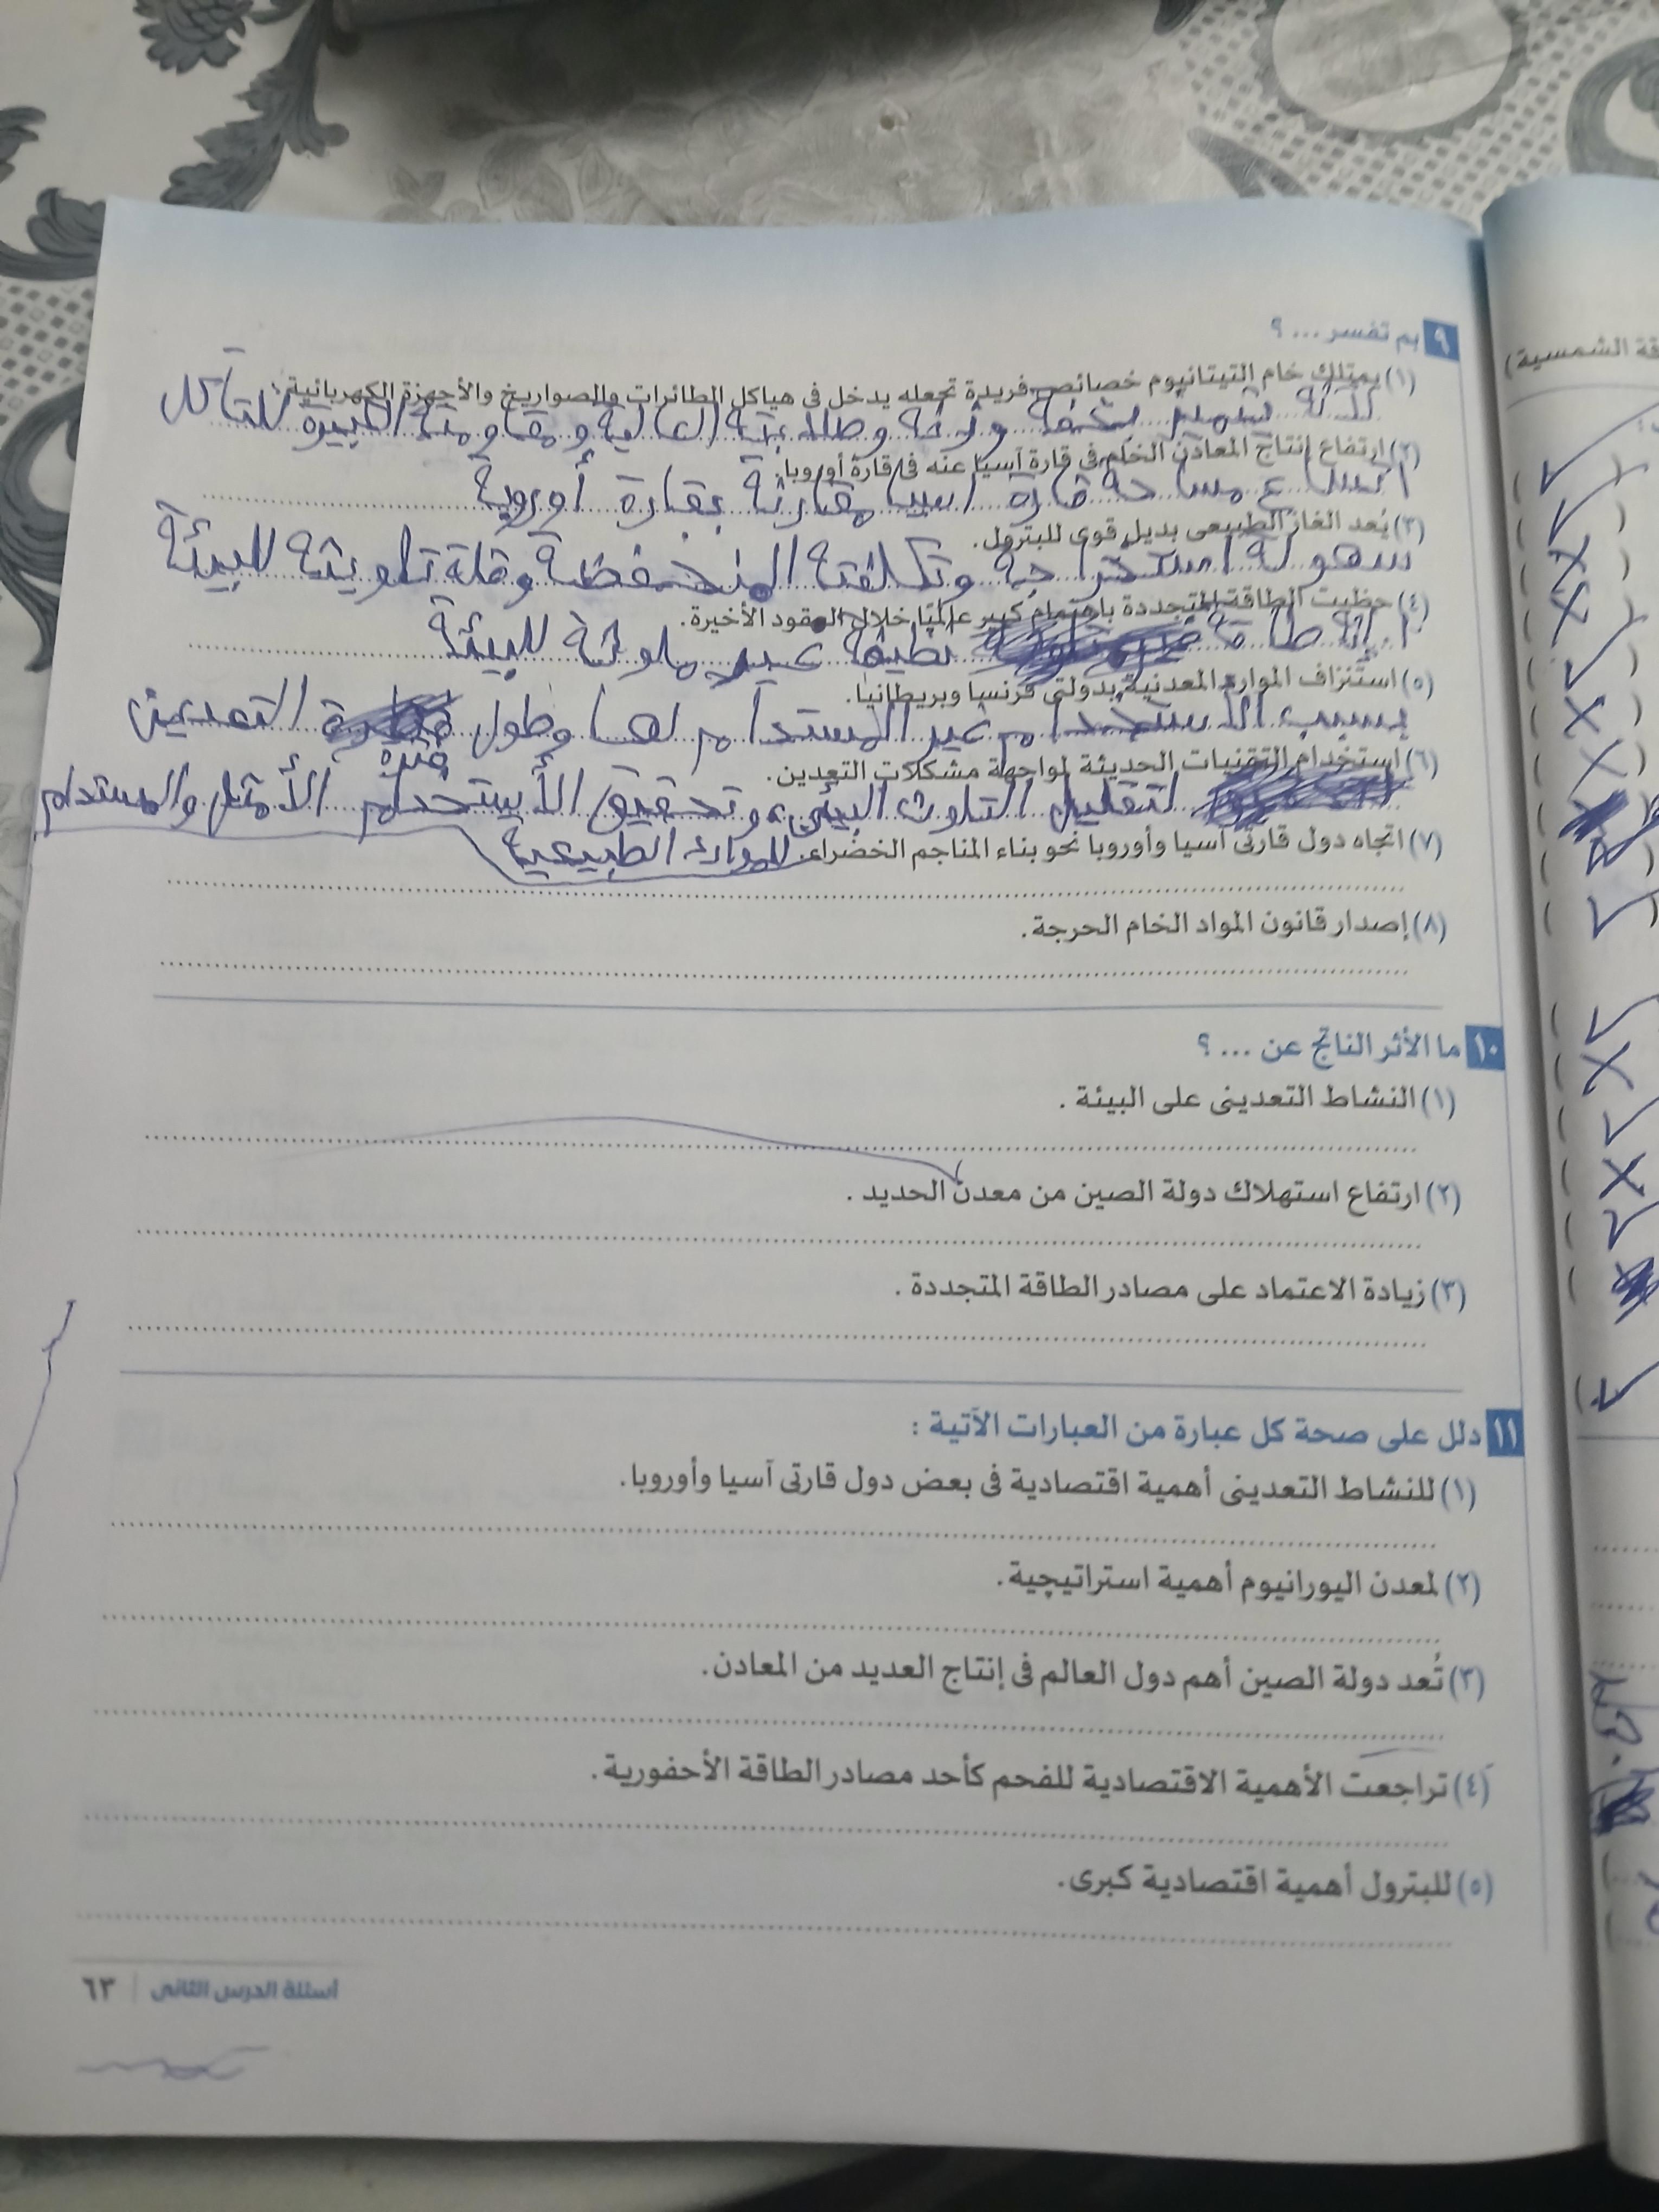 ٩ بم تفسر ... ؟
(١) يمتلك خام التيتانيوم خصائص فريدة تجعله يدخل فى هياكل الطائرات والصواريخ والأجهزة الكهربائية.
لأنه يتميز بخفة وزنه وصلابته العالية ومقاومته الكبيرة للتآكل
(٢) ارتفاع إنتاج المعادن الخام فى قارة آسيا عنه فى قارة أوروبا.
اتساع مساحة قارة اسيا مقارنة بقارة أوروبة
(٣) يُعد الغاز الطبيعى بديل قوى للبترول.
سهولة استخراجه وتكلفته المنخفضة وقلة تلويثه للبيئة
(٤) حظيت الطاقة المتجددة باهتمام كبير عالميًا خلال العقود الأخيرة.
طاقة نظيفة غير ملوثة للبيئة
(٥) استنزاف الموارد المعدنية بدولتى فرنسا وبريطانيا.
بسبب الاستخدام غير المستدام لها وطول فترة التعدين
(٦) استخدام التقنيات الحديثة لمواجهة مشكلات التعدين.
لتقليل التلوث البيئى وتحقيق الأستخدام الأمثل والمستدام
للموارد الطبيعية
(٧) اتجاه دول قارتى آسيا وأوروبا نحو بناء المناجم الخضراء.
(٨) إصدار قانون المواد الخام الحرجة.
١٠ ما الأثر الناتج عن ... ؟
(١) النشاط التعدينى على البيئة .
(٢) ارتفاع استهلاك دولة الصين من معدن الحديد .
(٣) زيادة الاعتماد على مصادر الطاقة المتجددة .
١١ دلل على صحة كل عبارة من العبارات الآتية :
(١) للنشاط التعدينى أهمية اقتصادية فى بعض دول قارتى آسيا وأوروبا.
(٢) لمعدن اليورانيوم أهمية استراتيچية.
(٣) تُعد دولة الصين أهم دول العالم فى إنتاج العديد من المعادن.
(٤) تراجعت الأهمية الاقتصادية للفحم كأحد مصادر الطاقة الأحفورية.
(٥) للبترول أهمية اقتصادية كبرى.
أسئلة الدرس الثانى | ٦٣
الشمسية)